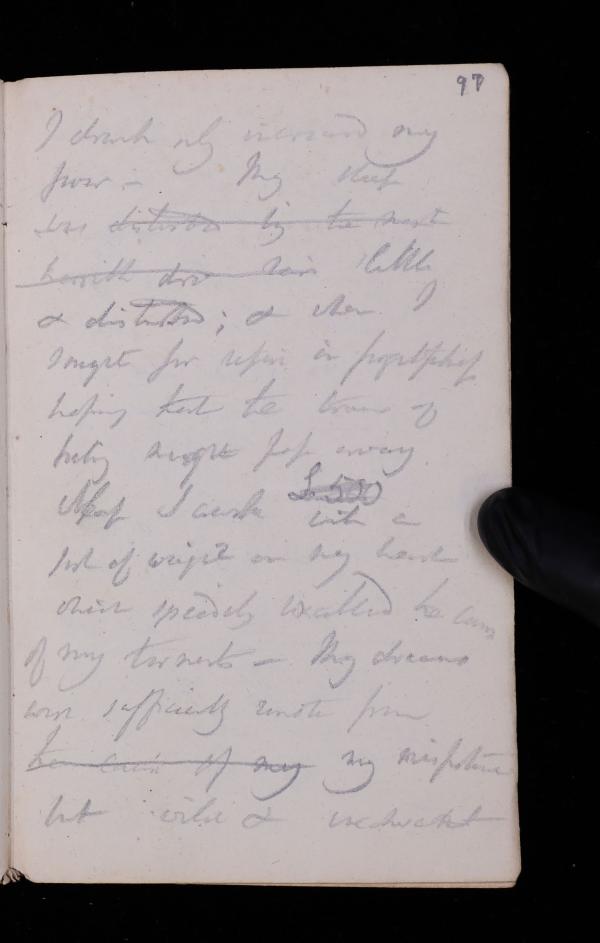 97
I drank only increased my
fever – My sleep
was ~~disturbed by the next~~
little
& disturbed; & when I
sought for in forgetfulness
hoping that the of
being might pass away
£500
Alas I awoke with a
sort of weight on my heart
which speedily recalled the cause
of my torments – My dreams
were sufficiently remote from
~~the cause of my~~ my misfortune
but wild &